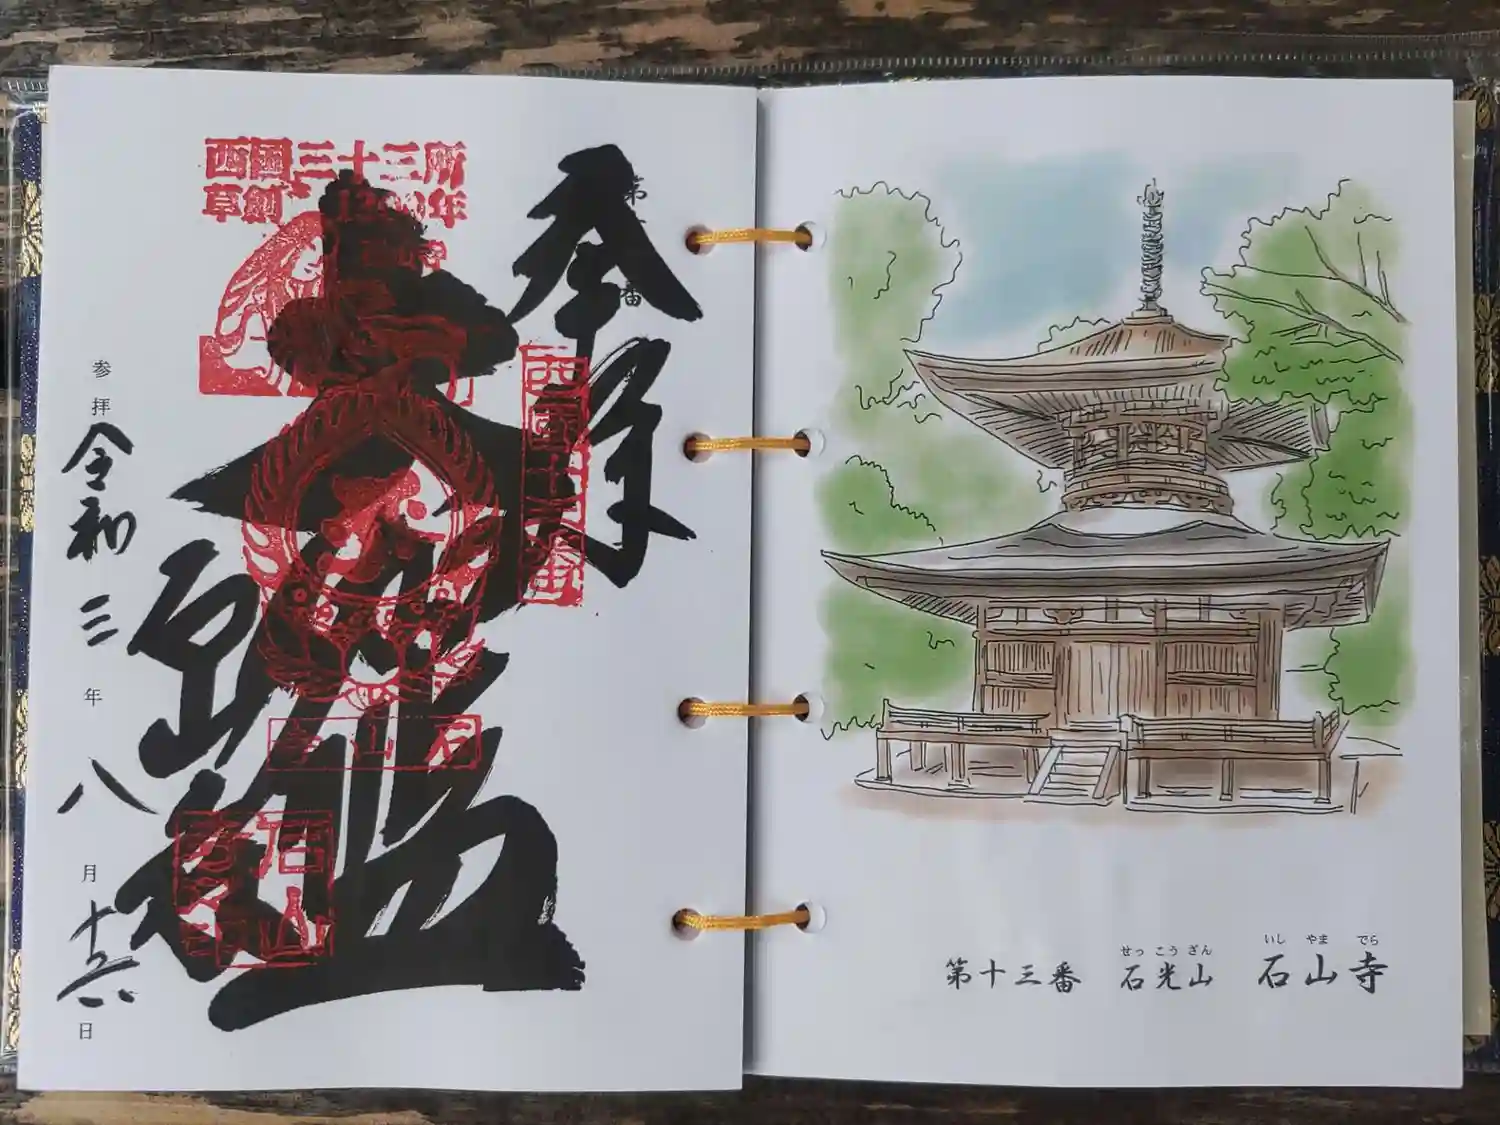 奉拝
第
番
西国十三番
西国三十三所
草創1300年
大悲殿
石山寺
石山寺印
参拝
令和三年八月十六日
せっこうざん
いしやまでら
第十三番 石光山 石山寺